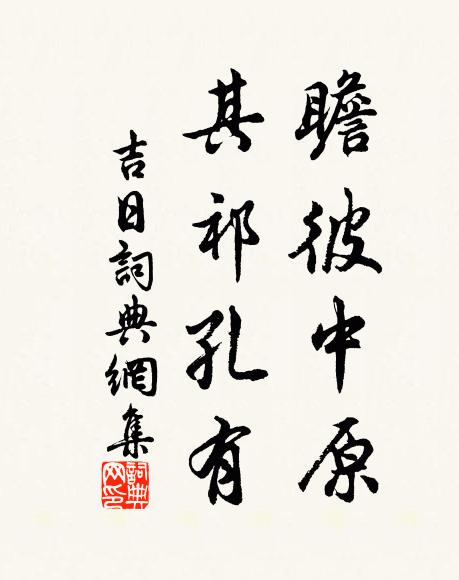 瞻彼中原
其祁孔有
吉日詞典網集
詞典网印